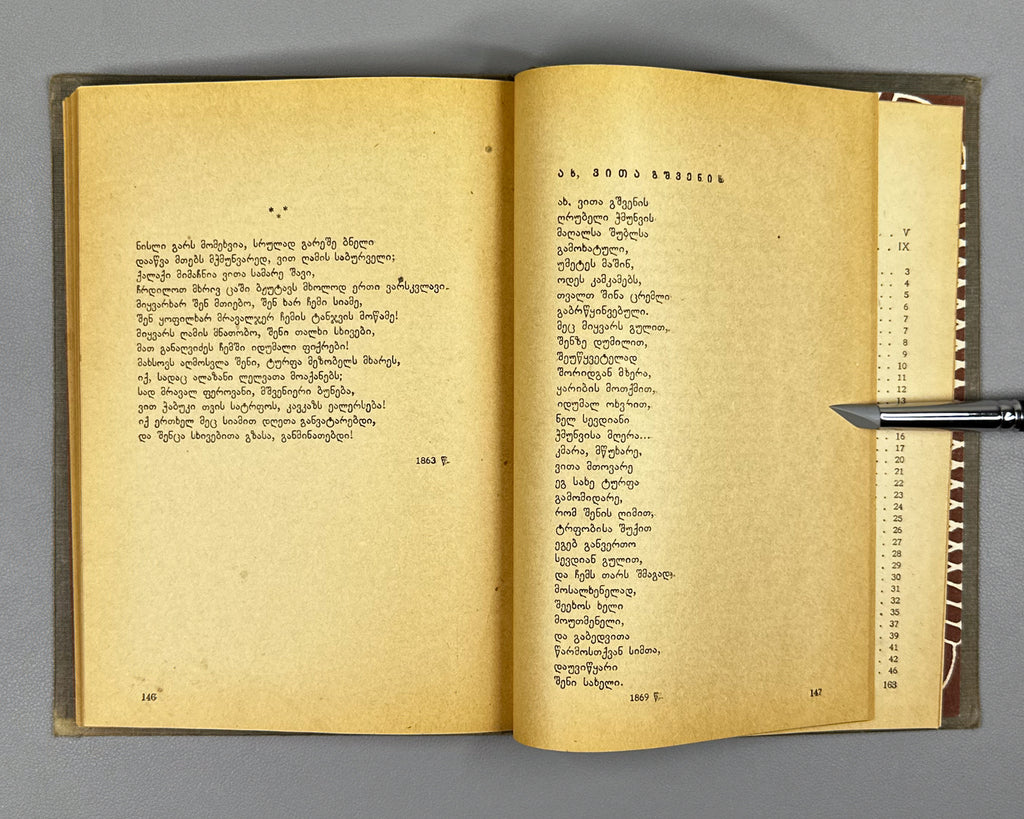 * * *
ნისლი გარს მომეხვია, სრულად გარეშე ბნელი
დააწვა მთებს მჭმუნვარედ, ვით ღამის საბურველი;
ქალაქი მიმაჩნია ვითა სამარე შავი,
ჩრდილოთ მხრივ ცაში ბჟუტავს მხოლოდ ერთი ვარსკვლავი.
მიყვარხარ შენ მთიებო, შენ ხარ ჩემი სიამე,
შენ ყოფილხარ მრავალჯერ ჩემის ტანჯვის მოწამე!
მიყვარს ღამის მნათობო, შენი თალხი სხივები,
მათ განაღვიძეს ჩემში იდუმალი ფიქრები!
მახსოვს აღმოსვლა შენი, ტურფა მეზობელს მხარეს,
იქ, სადაც ალაზანი ლელვათა მოაქანებს;
სად მრავალ ფეროვანი, მშვენიერი ბუნება,
ვით ჭაბუკი თვის სატრფოს, კავკაზს ეალერსება!
იქ ერთხელ მეც სიამით დღეთა განვატარებდი,
და შენცა სხივებითა გზასა, განმინათებდი!
1863 წ.
146
ახ, ვითა გშვენის
ახ, ვითა გშვენის
ღრუბელი ჭმუნვის
მაღალსა შუბლსა
გამოხატული,
უმეტეს მაშინ,
ოდეს კამკამებს,
თვალთ შინა ცრემლი
გაბრწყინვებული.
მეც მიყვარს გულით,
შენზე დუმილით,
შეუწყვეტელად
შორიდგან მხერა,
ყარიბის მოთქმით,
იდუმალ ოხვრით,
ნელ სევდიანი
ჭმუნვისა მღერა...
კმარა, მწუხარე,
ვითა მთოვარე
ეგ სახე ტურფა
გამომიდარე,
რომ შენის ღიმით,
ტრფობისა შუქით
ეგებ განვერთო
სევდიან გულით,
და ჩემს თარს შმაგად
მოსალხენელად,
შეეხოს ხელი
მოუთმენელი,
და გაბედვითა
წარმოსთქვან სიმთა,
დაუვიწყარი
შენი სახელი.
1869 წ.
147
V
IX
3
4
5
6
7
7
8
9
10
11
12
13
16
17
20
21
22
23
24
25
26
27
28
29
30
31
32
35
37
39
41
42
46
163